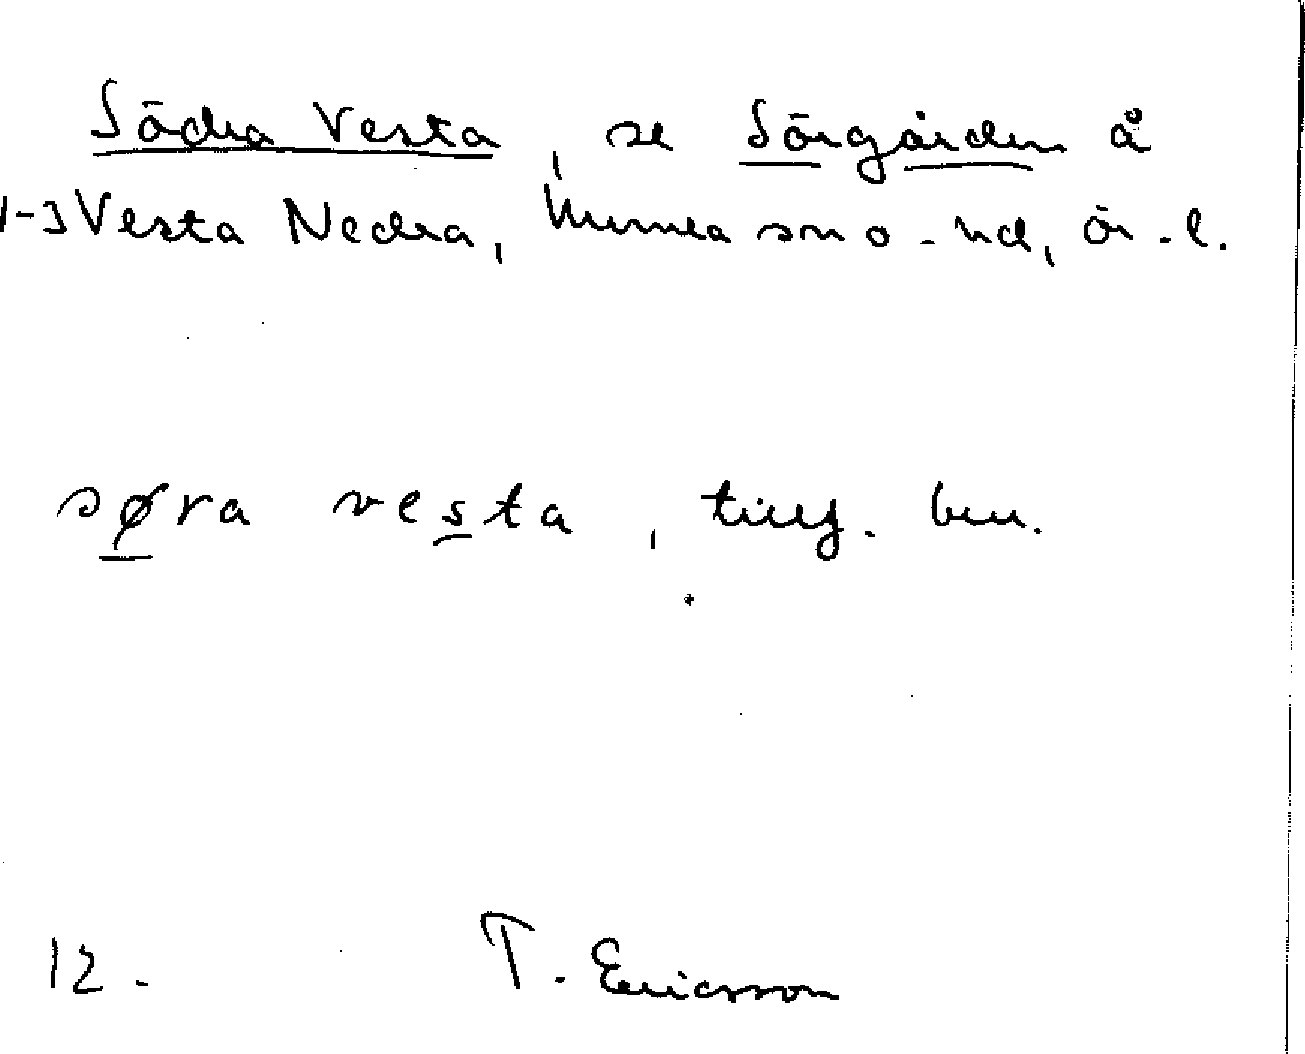 Södra Vesta, se Sörgården å
1-3 Vesta Nedra, Mumla sn o. hd, Ör. l.
søra vesta, tillf. ben.
12. T. Ericsson